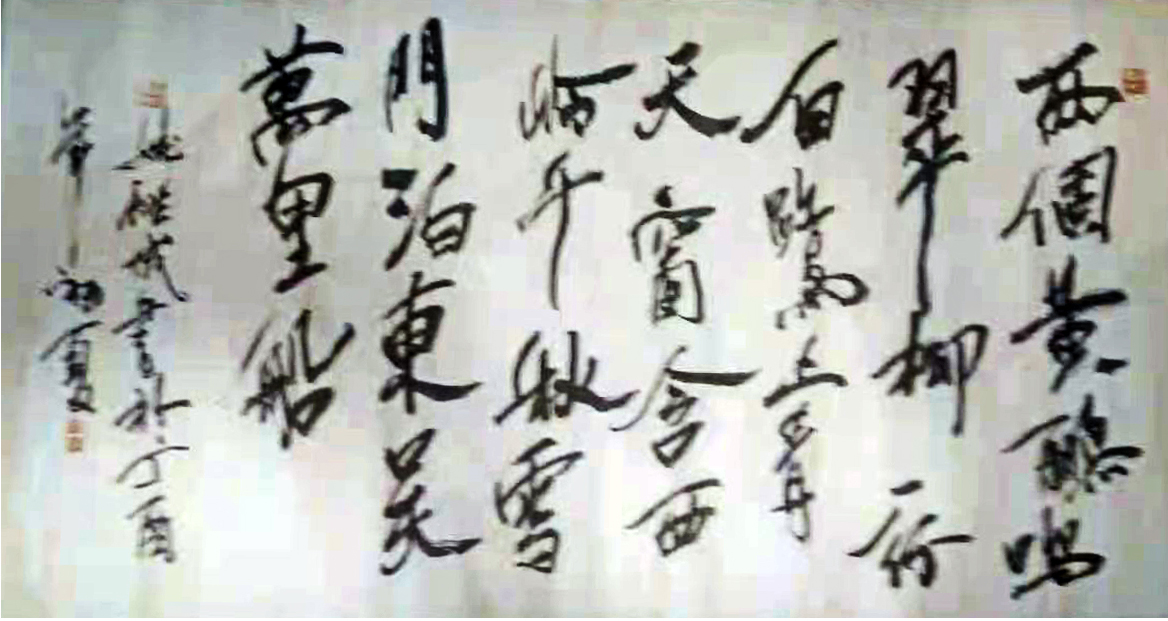 兩個黄鸝鳴
翠柳一行
白鷺上青
天窗含西
嶺千秋雪
門泊東吳
萬里船
書於丁酉
年初夏